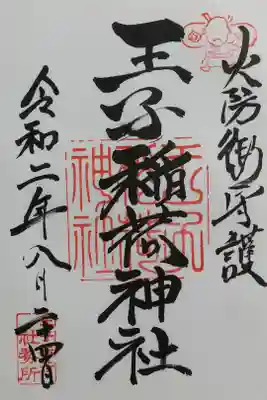 火防御守護
王子稲荷神社
令和二年八月二十四日
王子稲荷神社
社務所